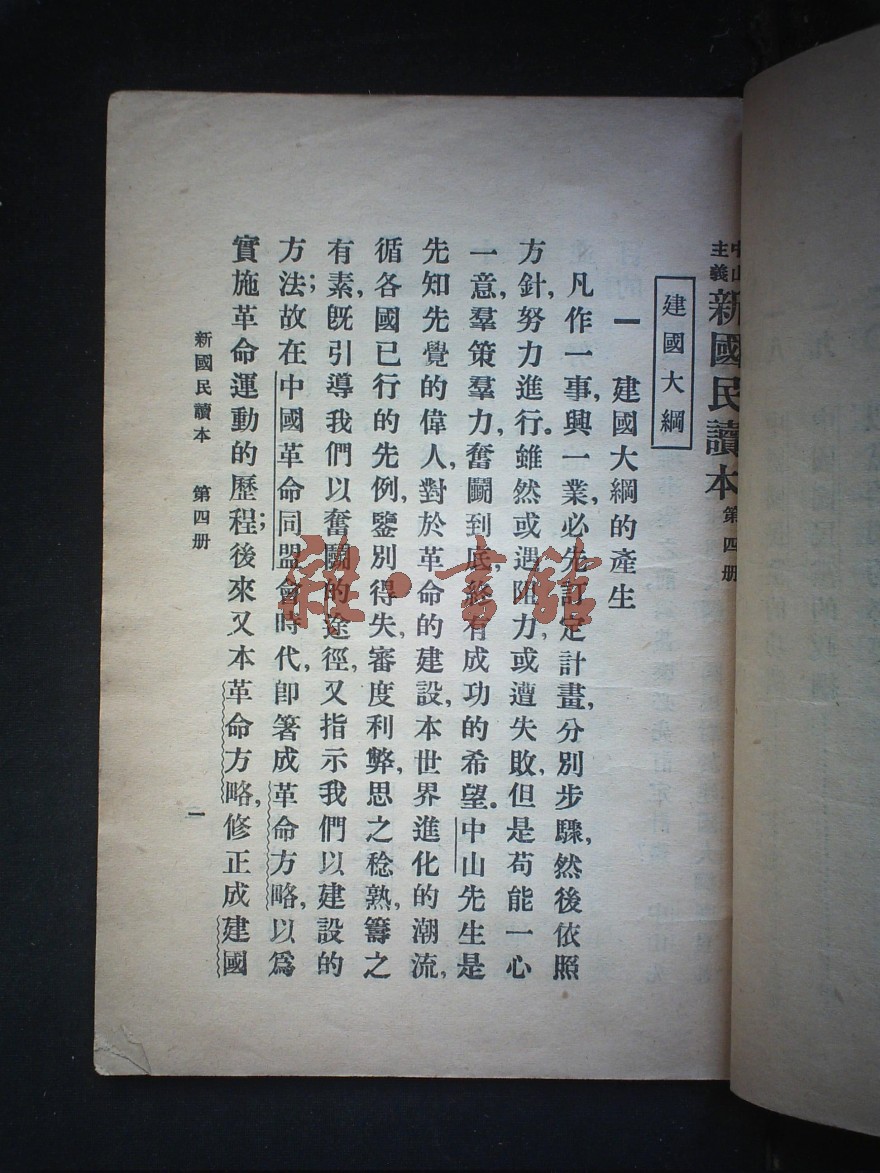 中山主義新國民讀本 第四册
建國大綱
一 建國大綱的產生
凡作一事,興一業,必先訂定計畫,分別步驟,然後依照
方針,努力進行。雖然或遇阻力,或遭失敗,但是苟能一心
一意,羣策羣力,奮鬭到底,終有成功的希望。中山先生是
先知先覺的偉人,對於革命的建設,本世界進化的潮流,
循各國已行的先例,鑒別得失,審度利弊,思之稔熟,籌之
有素,旣引導我們以奮鬭的途徑,又指示我們以建設的
方法;故在中國革命同盟會時代,卽箸成革命方略,以爲
實施革命運動的歷程;後來又本革命方略,修正成建國
新國民讀本 第四册
一
雜·書館